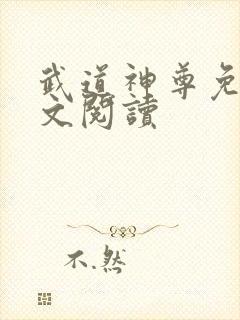 武道神尊免
文閱讀
不.然